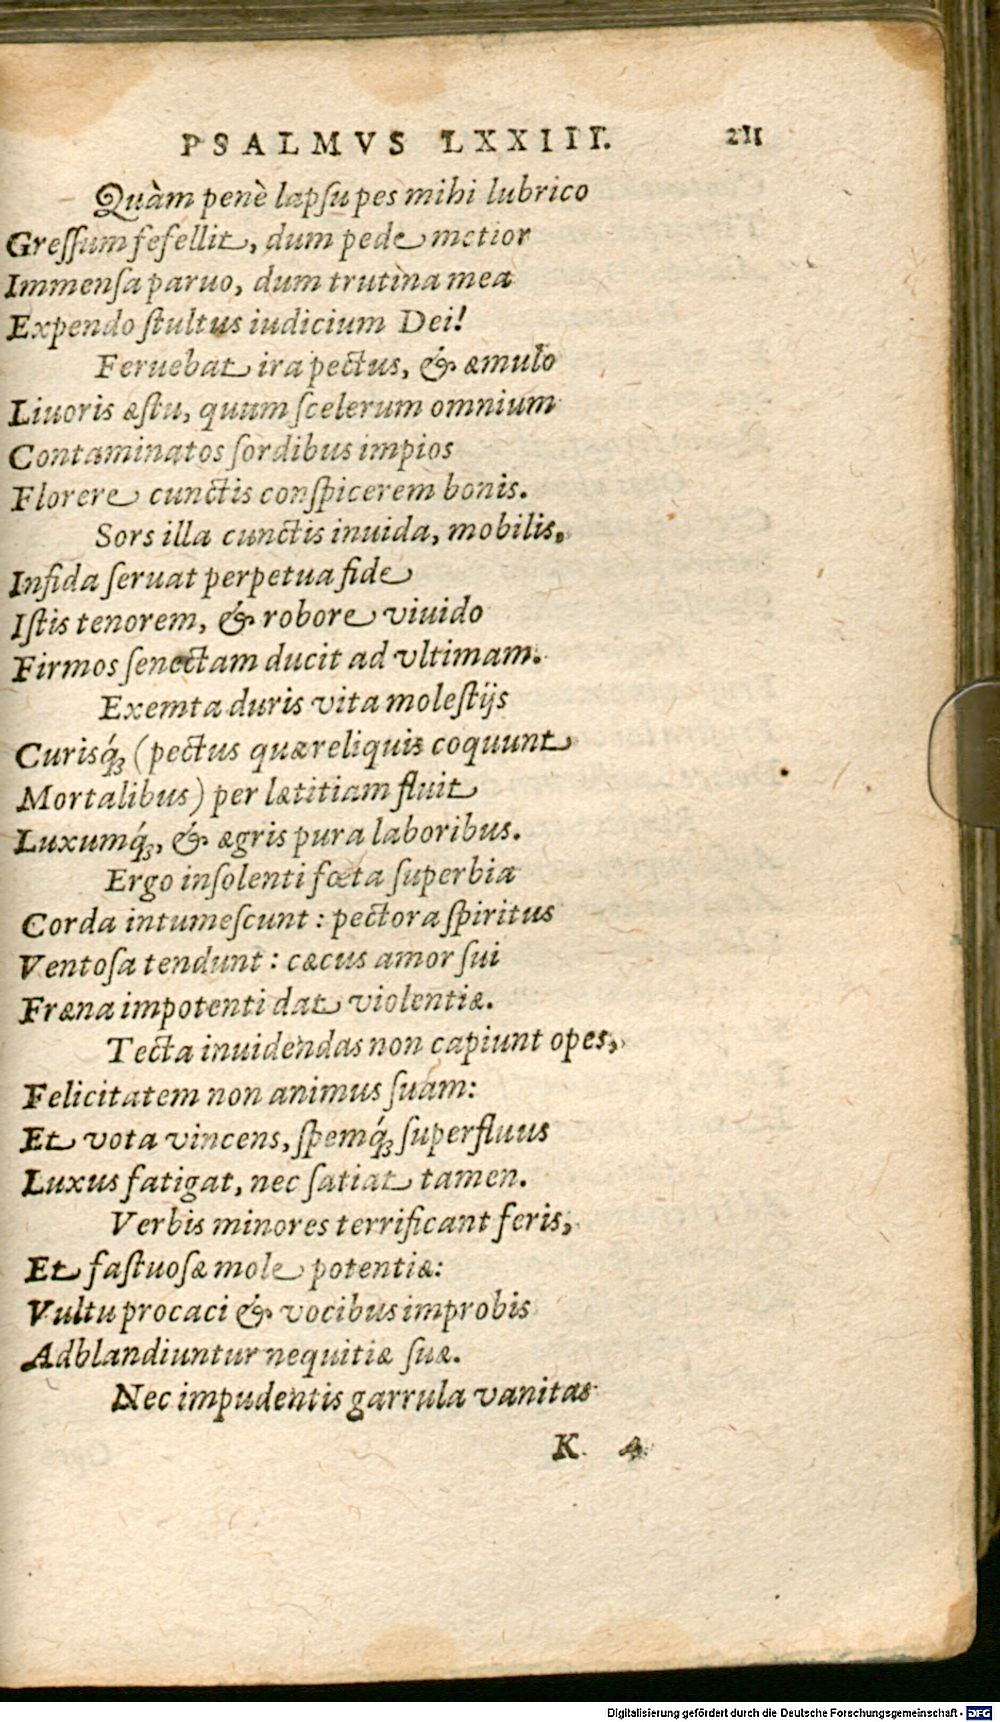 PSALMVS LXXIII. 211
Quàm penè lapsu pes mihi lubrico
Greſſum fefellit, dum pede metior
Immenſa paruo, dum trutina mea
Expendo ſtultus iudicium Dei!
Feruebat ira pectus, & æmulo
Liuoris æſtu, quum ſcelerum omnium
Contaminatos ſordibus impios
Florere cunctis conſpicerem bonis.
Sors illa cunctis inuida, mobilis,
Infida ſeruat perpetua fide
Iſtis tenorem, & robore viuido
Firmos ſenectam ducit ad vltimam.
Exemta duris vita moleſtijs
Curisq́; (pectus quæ reliquis coquunt
Mortalibus) per lætitiam fluit
Luxumq́;, & ægris pura laboribus.
Ergo inſolenti fœta ſuperbia
Corda intumeſcunt: pectora ſpiritus
Ventoſa tendunt: cæcus amor ſui
Fræna impotenti dat violentiæ.
Tecta inuidendas non capiunt opes,
Felicitatem non animus ſuam:
Et vota vincens, ſpemq́; ſuperfluus
Luxus fatigat, nec ſatiat tamen.
Verbis minores terrificant feris,
Et faſtuoſæ mole potentiæ:
Vultu procaci & vocibus improbis
Adblandiuntur nequitiæ ſuæ.
Nec impudentis garrula vanitas
K. 4
Digitalisierung gefördert durch die Deutsche Forschungsgemeinschaft - DFG